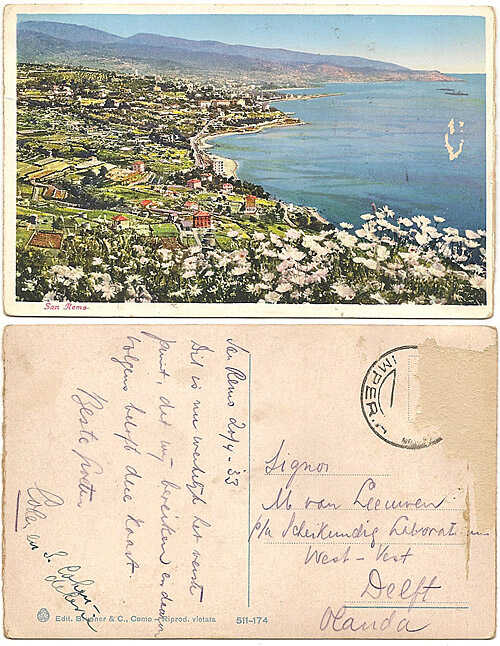 San Remo
San Remo 20/4-33
Dit is nu werkelijk het verste
punt, dat wij bereiken en deze
volgens deze kaart.
Beste groeten
IMPER
Signor
M van Leeuwen
p/a Scheikundig Laboratorium
West-Vest
Delft
Olanda
Edit. Brunner & C., Como - Riprod. vietata
511-174